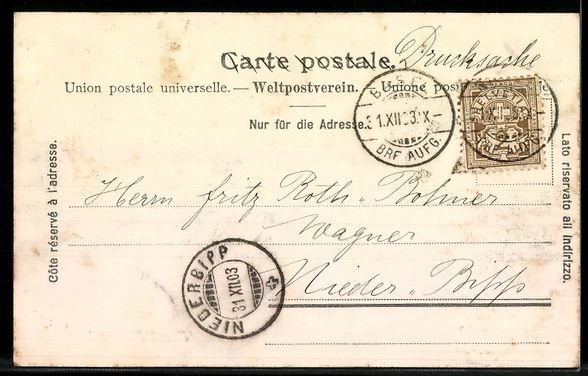 Carte postale. Drucksache
Union postale universelle. — Weltpostverein. — Unione postale
Nur für die Adresse.
BRF. AUFG.
31.XII.03.X–
HELVETIA
BRF. AUFG.
Côte réservé à l'adresse.
Lato riservato all indirizzo.
Herrn Fritz Roth-Bohner
Wagner
Nieder-Bipp
NIEDERBIPP
31.XII.03